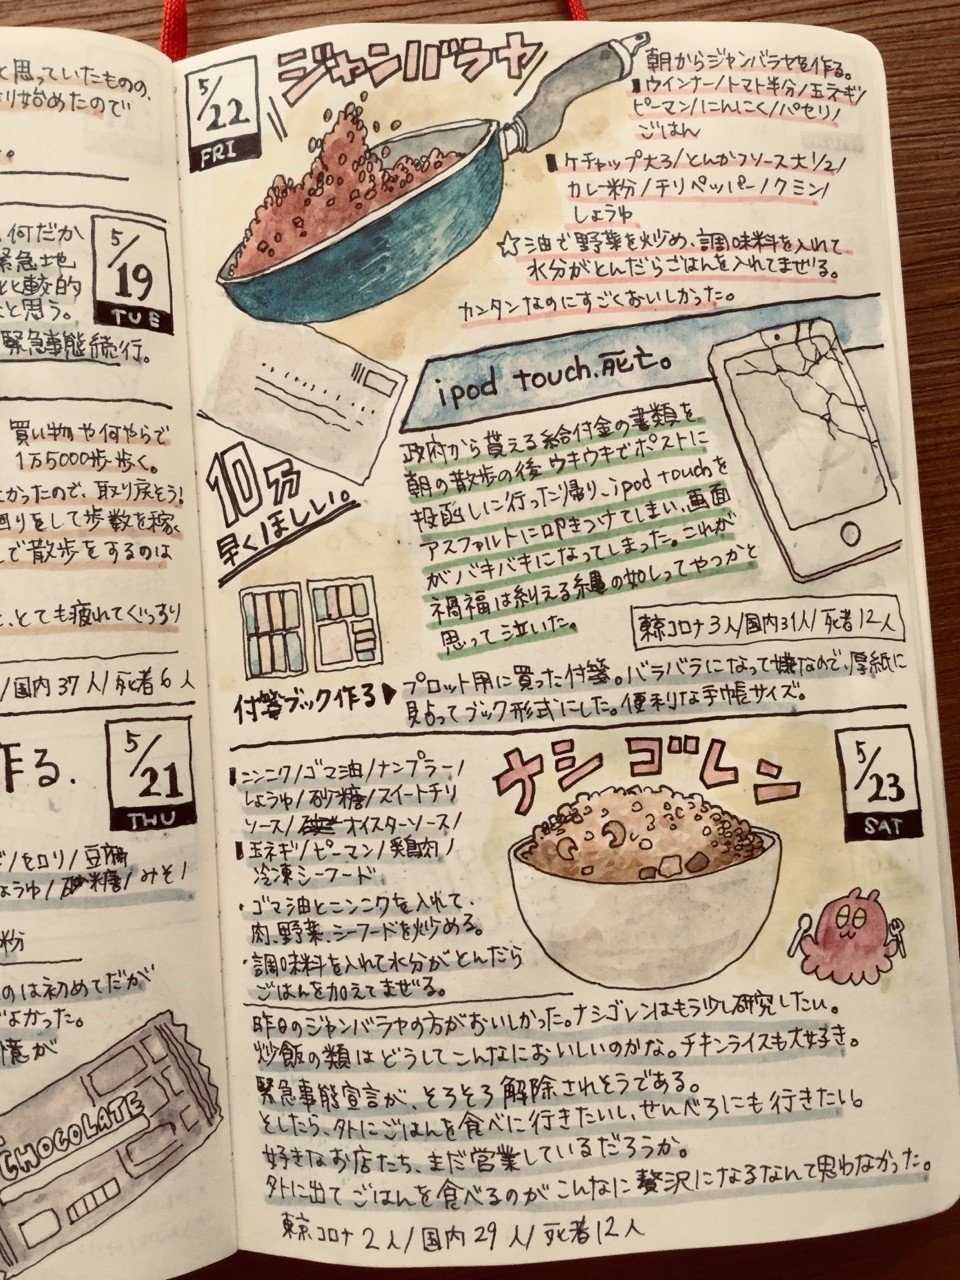 と思っていたものの、
り始めたので
。
何だか
緊急地
と比較的
と思う。
緊急事態続行。
5/19
TUE
買い物や何やらで
1万5000歩歩く。
かったので、取り戻そう!
回りをして歩数を稼
して散歩をするのは
、とても疲れてぐっすり
/国内37人/死者6人
作る.
5/21
THU
/セロリ/豆腐
しょうゆ/砂糖/みそ/
粉
のは初めてだが
よかった。
CHOCOLATE
5/22
FRI
ジャンバラヤ
朝からジャンバラヤを作る。
ウインナー/トマト半分/玉ネギ/
ピーマン/にんにく/パセリ/
ごはん
ケチャップ大3/とんかつソース大1/2/
カレー粉/チリペッパー/クミン/
しょうゆ
☆油で野菜を炒め、調味料を入れて
水分がとんだらごはんを入れてまぜる。
カンタンなのにすごくおいしかった。
10万
早くほしい。
ipod touch.死亡。
政府から貰える給付金の書類を
朝の散歩の後ウキウキでポストに
投函しに行った帰り、ipod touchを
アスファルトに叩きつけてしまい、画面
がバキバキになってしまった。これが
禍福は糾える縄の如しってやつかと
思って泣いた。
東京コロナ3人/国内31人/死者12人
付箋ブック作る▶
プロット用に買った付箋。バラバラになって嫌なので、厚紙に
貼ってブック形式にした。便利な手帳サイズ。
ナシゴレン
5/23
SAT
ニンニク/ゴマ油/ナンプラー/
しょうゆ/砂糖/スイートチリ
ソース/オイスターソース/
玉ネギ/ピーマン/鶏肉/
冷凍シーフード
・ゴマ油とニンニクを入れて、
肉、野菜、シーフードを炒める。
・調味料を入れて水分がとんだら
ごはんを加えてまぜる。
昨日のジャンバラヤの方がおいしかった。ナシゴレンはもう少し研究したい。
炒飯の類はどうしてこんなにおいしいのかな。チキンライスも大好き。
緊急事態宣言が、そろそろ解除されそうである。
そしたら、外にごはんを食べに行きたいし、せんべろにも行きたい。
好きなお店たち、まだ営業しているだろうか。
外に出てごはんを食べるのがこんなに贅沢になるなんて思わなかった。
東京コロナ2人/国内29人/死者12人